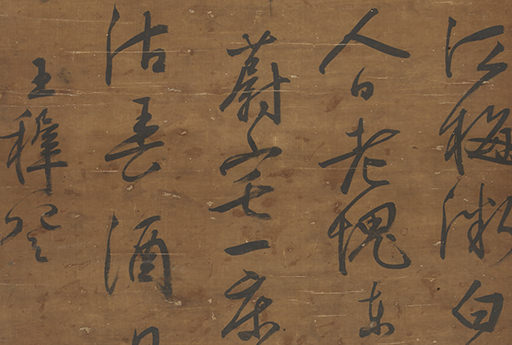 江梅漸白
人日老愧東
蔚一床
沽春酒
王穉登